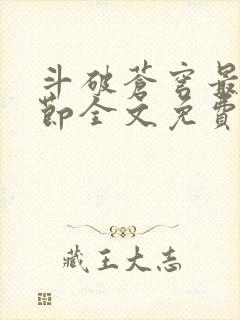 斗破苍穹最
节全文免費
藏王大志